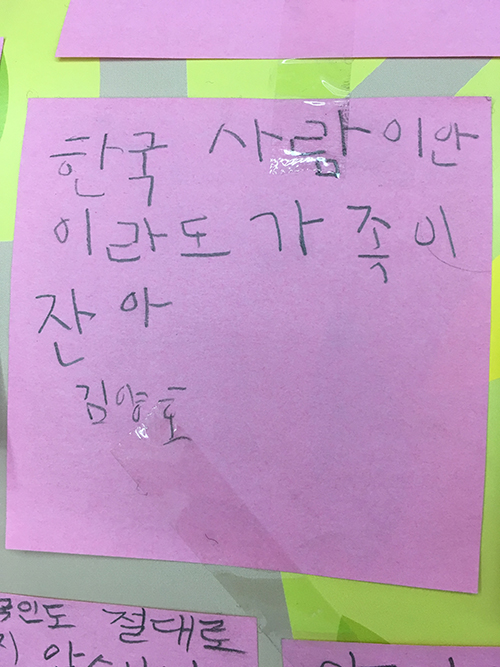 한국 사람이안
이라도 가족이
잔아
김양호
국인도 절대로